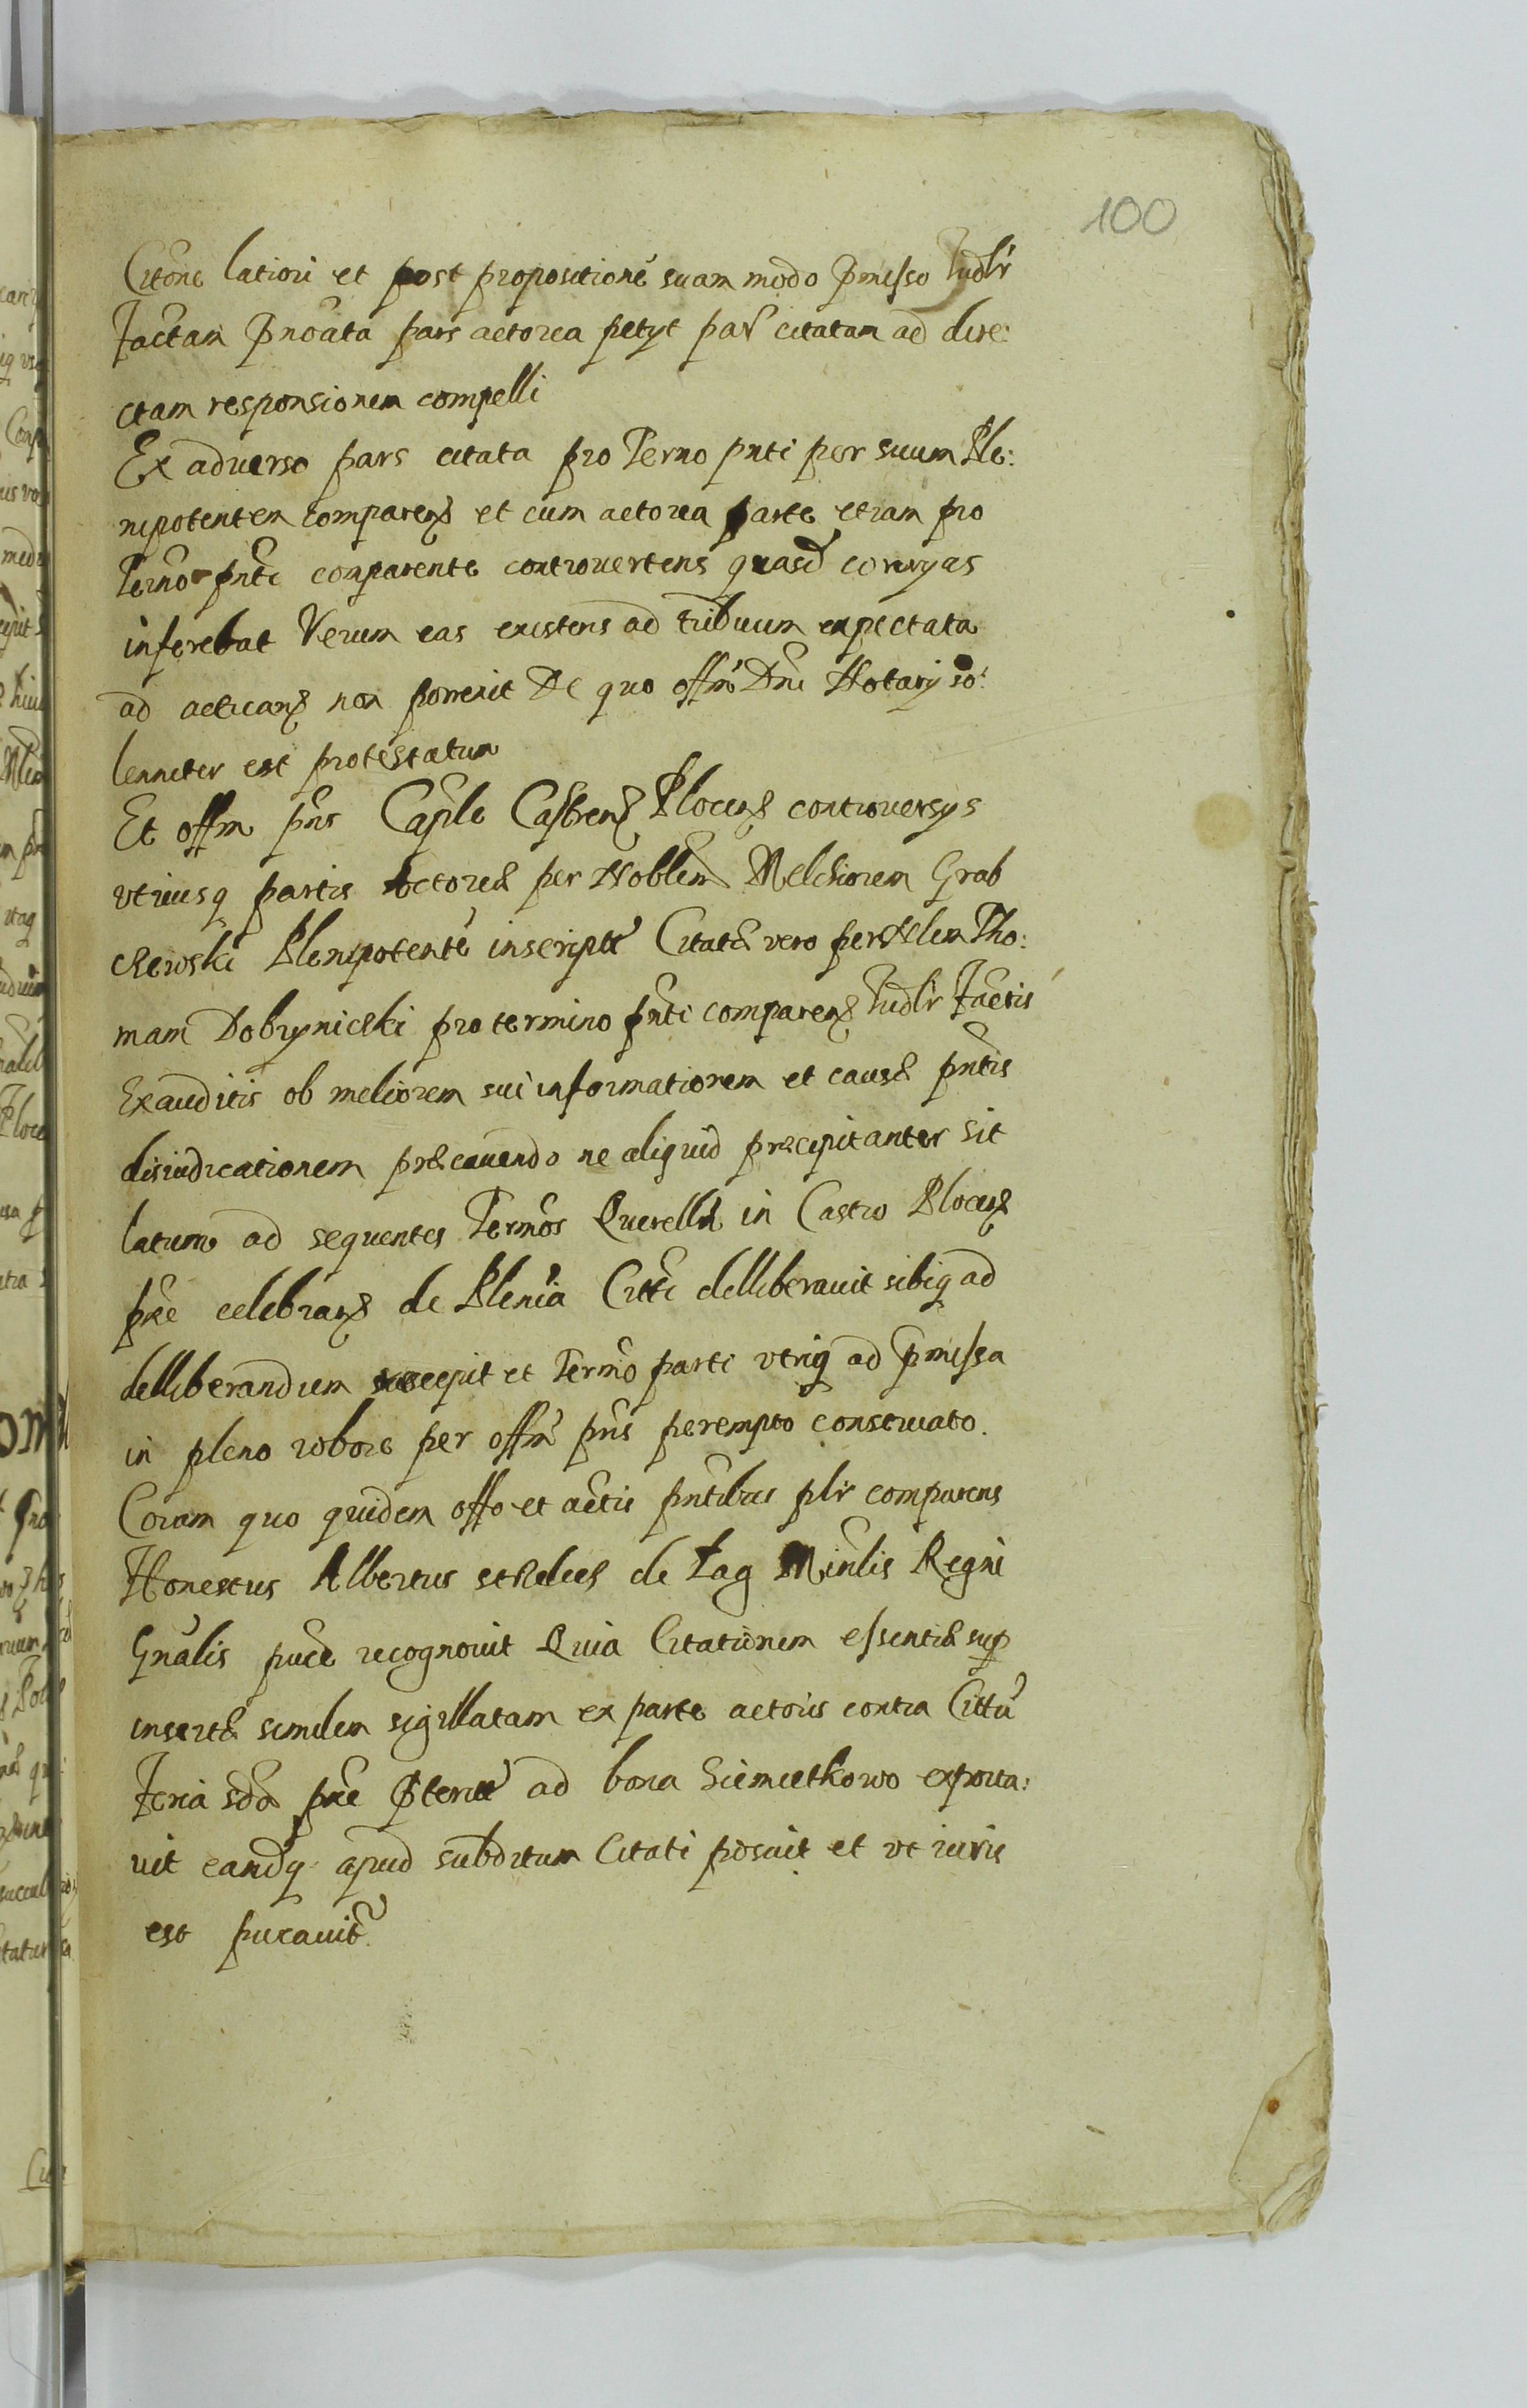 100
Citõne latiori et post propositionẽ suam modo p̃misso Iudlr
factam p̃noãta pars actorea petyt par citatam ad dire:
ctam responsionem compelli
Ex adverso pars citata pro Termo pñti per suum Ple:
nipotentem comparens et cum actorea parte etiam pro
Termo pñti comparente controvertens quasd controvsyas
inferebat Verum eas existens ad triduum expectata
ad acticans non porrexit De quo offm Dni Notary so:
lenniter est protestatum
Et offm pñs Caple Castrens Plocens controversys
vtriusq partis actoreæ per Noblem Melchiorem Grab
chewski Plenipotentẽ inscriptũ Citatæ vero per Nlem Tho:
mam Dobrynicski pro termino pñti comparens Iudlr factis
Exauditis ob meliorem sui informationem et causæ pñtis
disiudicationem præcavendo ne aliquid præcipitanter sit
latum ad sequentes Termos Querellæ in Castro Plocens
pxe celebrans de Plenia Citti delliberavit sibiq ad
delliberandum accepit et Termo parti vtriq ad p̃missa
in pleno robore per offm pñs perempto conservato.
Coram quo quidem offo et actis pñtibus plr comparens
Honestus Albertus de Łag Minlis Regni
Gñalis puce recognovit Quia Citationem essentiæ sup
insertæ similem sigillatam ex parte actoris contra Cittũ
Feria sda pxe p̃teritã ad bona Siemietkowo exporta:
vit eandq apud subditum Citati posuit et vt iuris
est pucavit.